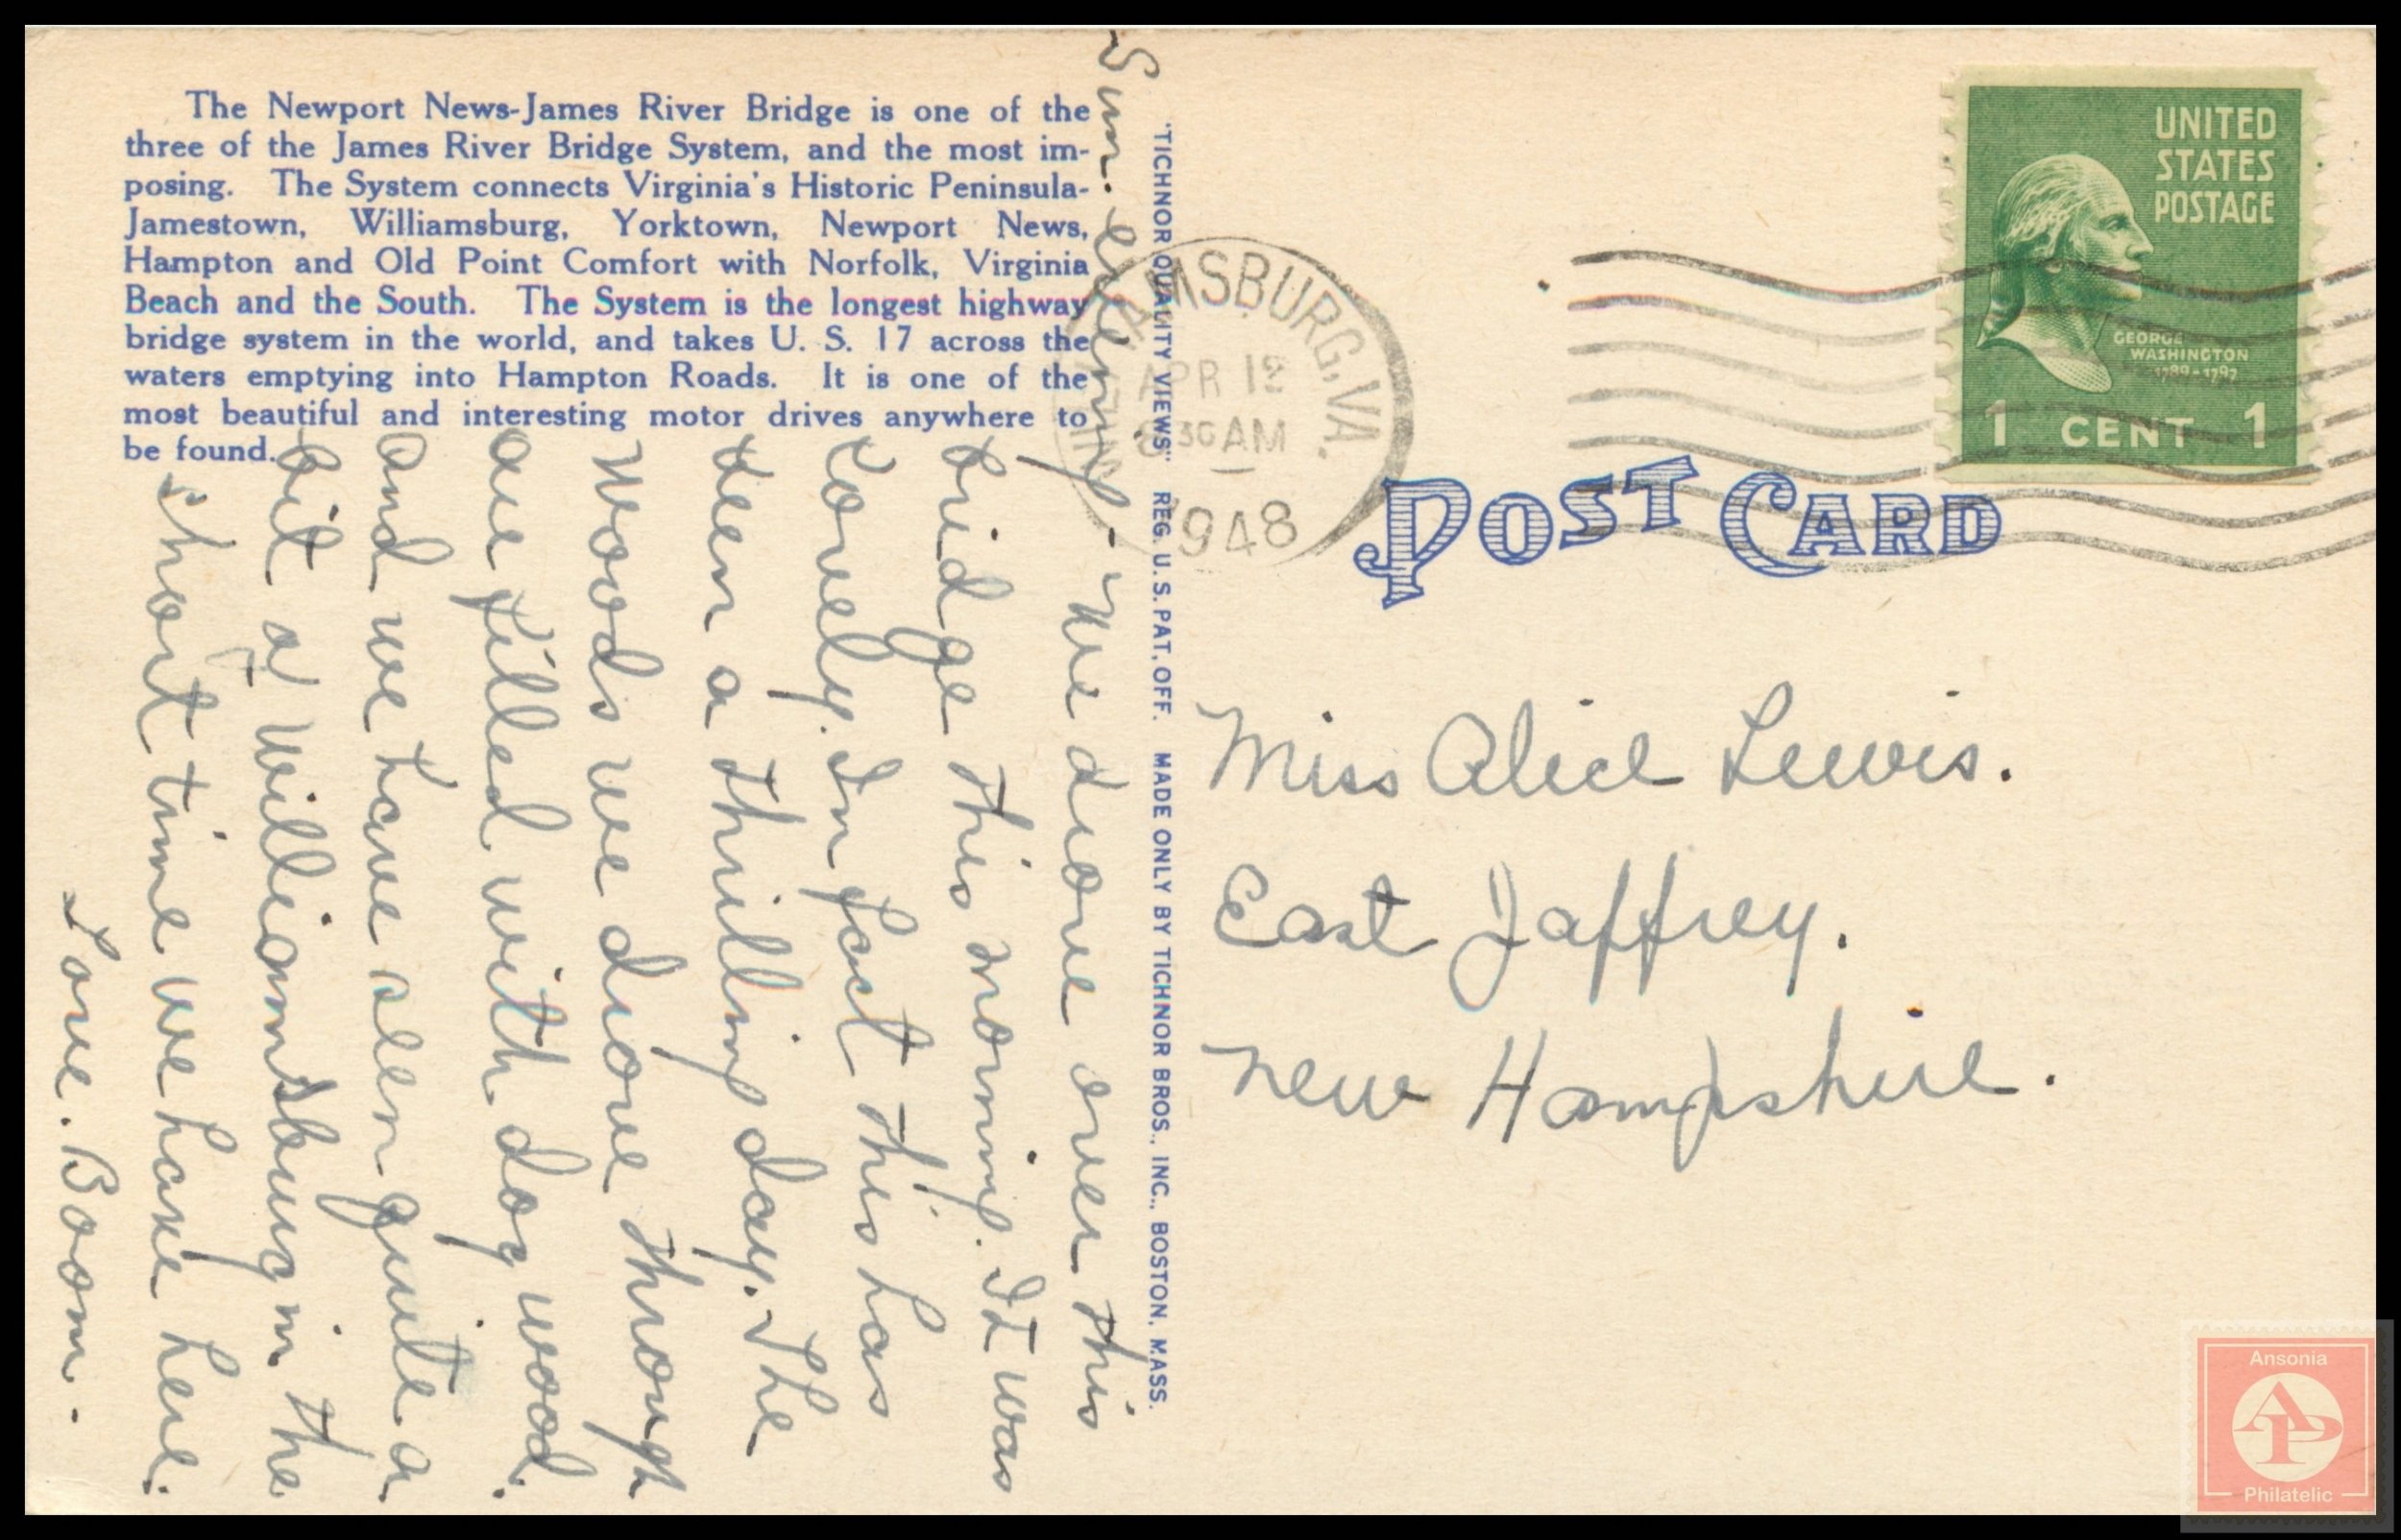 The Newport News-James River Bridge is one of the
three of the James River Bridge System, and the most im-
posing. The System connects Virginia's Historic Peninsula-
Jamestown, Williamsburg, Yorktown, Newport News,
Hampton and Old Point Comfort with Norfolk, Virginia
Beach and the South. The System is the longest highway
bridge system in the world, and takes U. S. 17 across the
waters emptying into Hampton Roads. It is one of the
most beautiful and interesting motor drives anywhere to
be found.
Sun. evening - We drove over this
bridge this morning. It was
lovely. In fact this has
been a thrilling day. The
woods we drove through
are filled with dog wood.
and we have seen quite a
bit of Williamsburg in the
short time we have here.
Love. Boom.
"TICHNOR QUALITY VIEWS" REG. U. S. PAT. OFF. MADE ONLY BY TICHNOR BROS., INC., BOSTON, MASS.
AMSBURG, VA.
APR
30 AM
1948
UNITED
STATES
POSTAGE
GEORGE
WASHINGTON
1789-1797
1 CENT 1
POST CARD
Miss Alice Lewis.
East Jaffrey.
New Hampshire.
Ansonia
AP
Philatelic